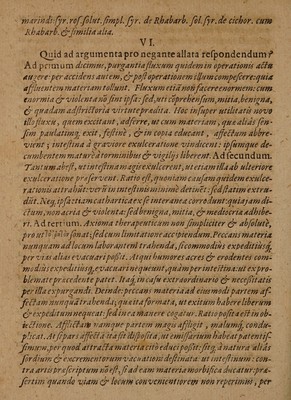 marindi: syr. ros. solut. simpl. syr. de Rhabarb. sol. syr. de cichor. cum
Rhabarb. & similia alia.
VI.
Quid ad argumenta pro negante allata respondendum?
Ad primum dicimus, purgantia fluxum quidem in operationis actu
augere per accidens autem, & post operationem illum compescere: quia
affluentem materiam tollunt. Fluxum etiā non facere enormem: cum
enormia & violenta nō sint ista: sed, uti cōprehensum, mitia, benigna,
& quadam adstrictoria virtute predita. Hoc insuper utilitatis novo
illo fluxu, quem excitant, adferre, ut cum materiam, quæ aliàs sen-
sim paulatimq; exit, festinè, & in copia educant, affectum abbre-
vient; intestina à graviore exulceratione vindicent: ipsumque de-
cumbentem maturè à torminibus & vigiliis liberent. Ad secundum.
Tantum abest, ut intestina magis exulcerent, ut etiam illa ab ulteriore
exulceratione præservent. Ratio est, quoniam causam quidem exulce-
rationis attrahūt: verū in intestinis minimè detinēt: sed statim extru-
dūt. Neq; ipsa etiam cathartica ex se interanea corrodūt: quia jam di-
ctum, non acria & violenta: sed benigna, mitia, & mediocria adhibe-
ri. Ad tertium. Axioma therapeuticum non simpliciter & absolutè,
sed cum limitatione accipiendum. Peccans materia
nunquam ad locum laborantem trahenda, si commodius expeditiusq;
per vias alias evacuari possit. Atqui humores acres & erodentes com-
modius expeditiusq; evacuari nequeunt, quàm per intestina: ut ex pro-
blemate præcedente patet. Itaq; in casu extraordinario & necessitatis
per illa expurgandi. Deinde: peccans materia eousmodi partem af-
fectam nunquā trahenda; quæ ita formata, ut exitum habere liberum
& expeditum nequeat: sed in ea manere cogatur. Ratio posita est in ob-
jectione. Afflictam namque partem magis affligit, malumq; condu-
plicat. At si pars affecta ita sit disposita, ut emissarium habeat patentis-
simum, per quod attracta materia eodem educi possit: sitq; à natura aliàs
sordium & excrementorum vacationi destinata: ut intestinum: con-
tra artis præscriptum nō est, si ad eam materia morbifica ducatur: præ-
sertim quando viam & locum convenientiorem non reperimus, per